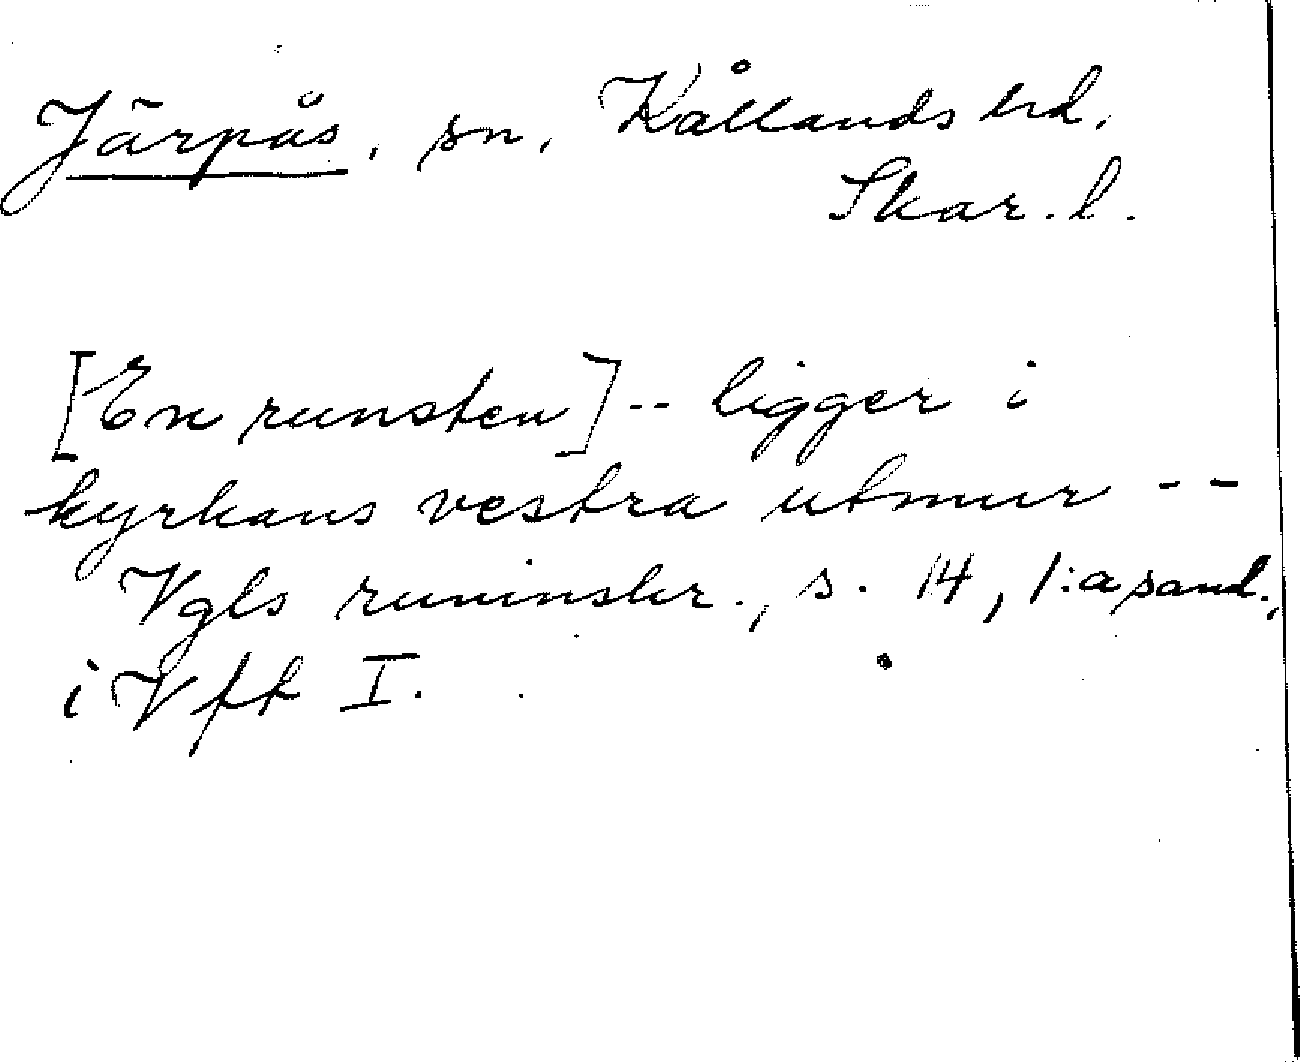 Järpås, sn, Kållands hd,
Skar. l.
[En runsten] -- ligger i
kyrkans vestra utmur --
Vgls runinskr., s. 14, 1:a saml.,
i Vfft I.